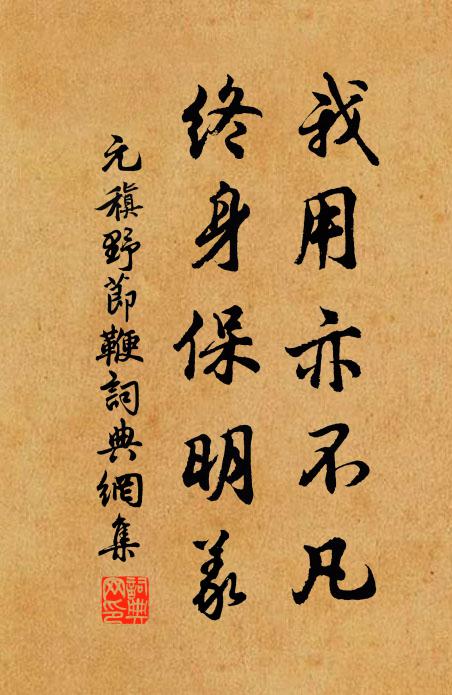 我用亦不凡
終身保明義
元稹野節鞭詞典網集
詞典網印